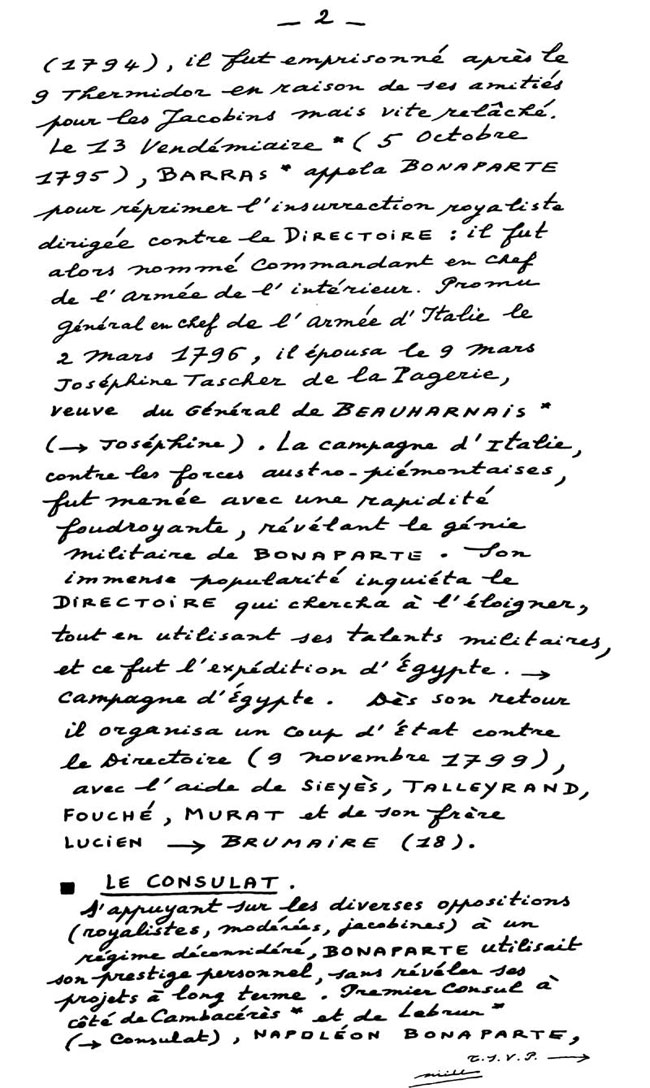 — 2 —
(1794), il fut emprisonné après le
9 Thermidor en raison de ses amitiés
pour les Jacobins mais vite relâché.
Le 13 Vendémiaire * (5 Octobre
1795), BARRAS * appela BONAPARTE
pour réprimer l'insurrection royaliste
dirigée contre le DIRECTOIRE : il fut
alors nommé Commandant en Chef
de l'Armée de l'intérieur. Promu
Général en Chef de l'Armée d'Italie le
2 Mars 1796, il épousa le 9 Mars
Joséphine Tascher de la Pagerie,
veuve du Général de BEAUHARNAIS *
(→ Joséphine). La campagne d'Italie,
contre les forces austro-piémontaises,
fut menée avec une rapidité
foudroyante, révélant le génie
militaire de BONAPARTE. Son
immense popularité inquiéta le
DIRECTOIRE qui chercha à l'éloigner,
tout en utilisant ses talents militaires,
et ce fut l'expédition d'Égypte. →
Campagne d'Égypte. Dès son retour
il organisa un Coup d'État contre
le Directoire (9 novembre 1799),
avec l'aide de SIEYÈS, TALLEYRAND,
FOUCHÉ, MURAT et de son frère
LUCIEN → BRUMAIRE (18).
■ LE CONSULAT.
S'appuyant sur les diverses oppositions
(royalistes, modérées, jacobines) à un
régime déconsidéré, BONAPARTE utilisait
son prestige personnel, sans révéler ses
projets à long terme. Premier Consul à
côté de Cambacérès * et de Lebrun *
(→ Consulat), NAPOLÉON BONAPARTE,
T.S.V.P. →